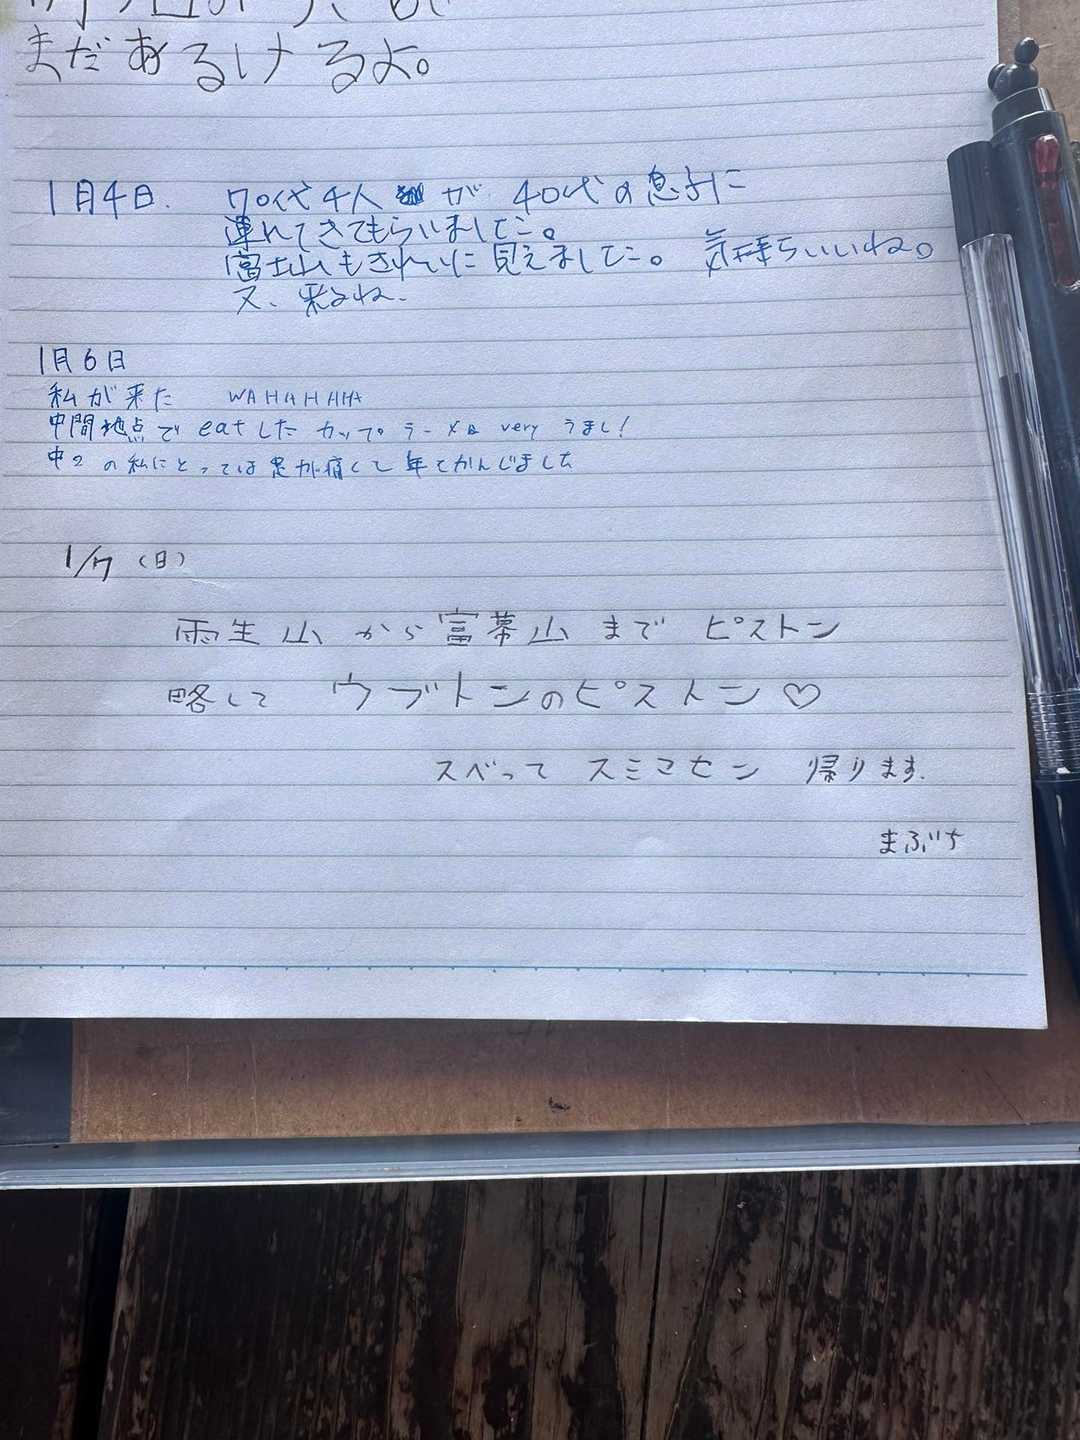 まだあるけるよ。
1月4日. 70代4人 が 40代の息子に
連れてきてもらいました。
富士山もきれいに見えました。 気持ちいいね。
又、来るね.
1月6日
私が来た WAHAHAHA
中間地点で eatした カップラーメンは very うまし!
中2の私にとっては足が痛くて年でかんじました
1/7 (日)
雨生山から富幕山までピストン
略して ウブトンのピストン♡
スベって スミマセン 帰ります.
まぶち